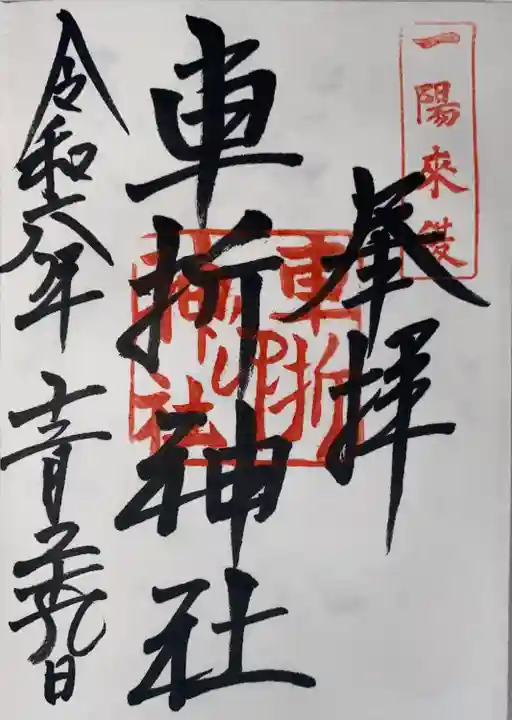 一陽來復
奉拝
車折神社
令和六年十二月二十九日
車折
神社